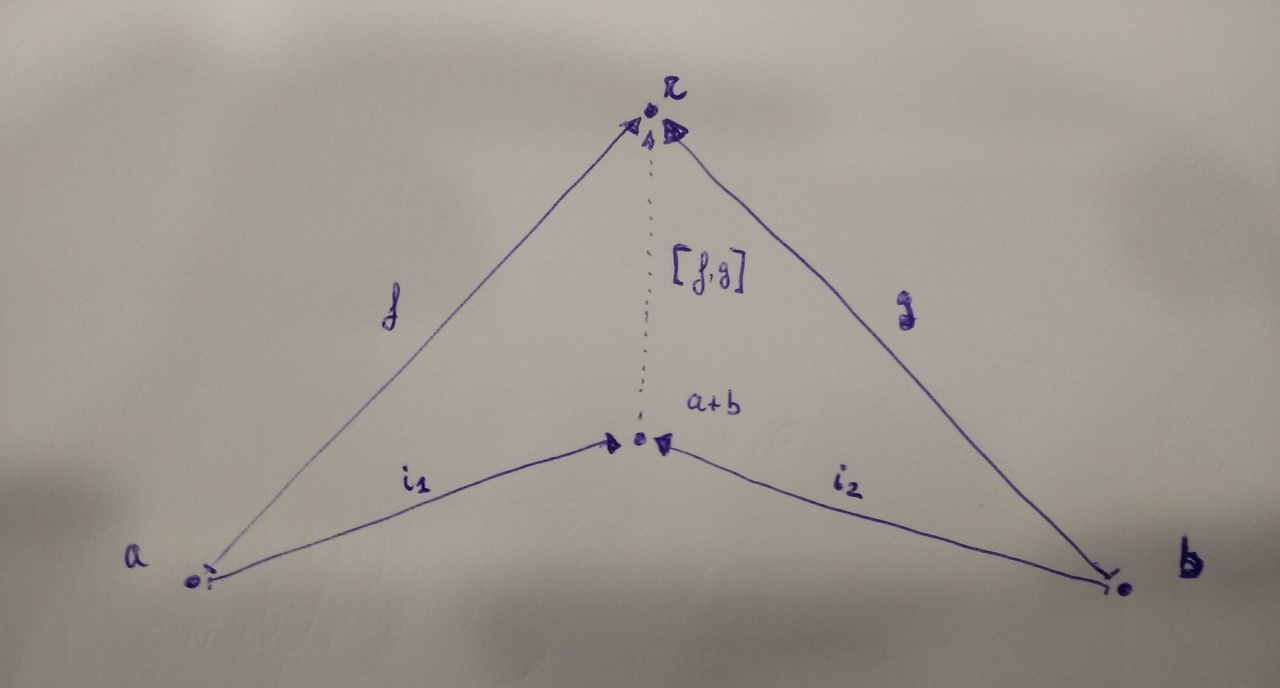 x
[f,g]
f
g
a+b
i1
i2
a
b